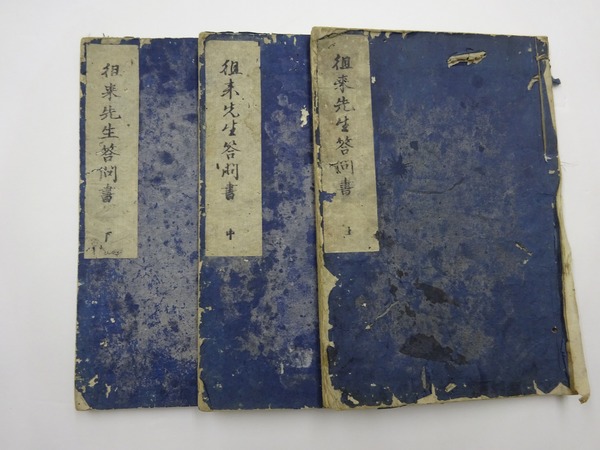 徂來先生答問書
上
徂來先生答問書
中
徂來先生答問書
下